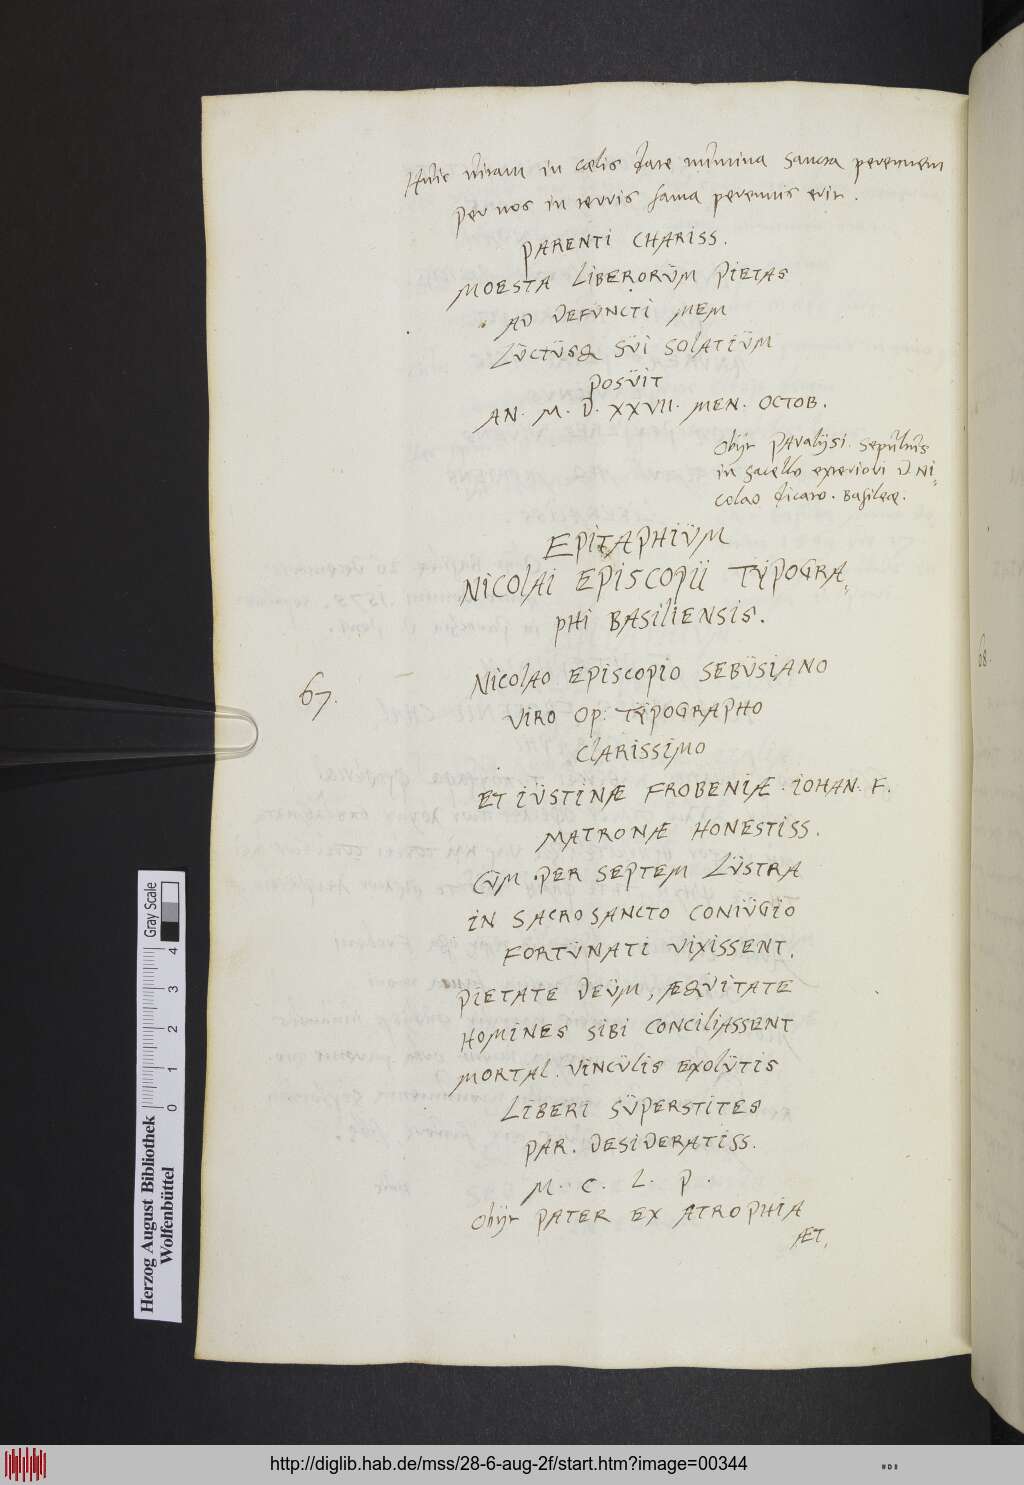 Huic vitam in cœlis date numina sancta perennem
Per nos in terris fama perennis erit.
PARENTI CHARISS.
MOESTA LIBERORŮM PIETAS
AD DEFVNCTI MEM
LŮCTŮSQ SŮI SOLATIŮM
POSŮIT
AN. M. D. XXVII. MEN. OCTOB.
Obijt PAralysi. Sepultus
in sacello exteriori D Ni=
colao dicato. Basileæ.
EPITAPHIŮM
NICOLAI EPISCOPII TYPOGRA=
PHI BASILIENSIS.
67.
NICOLAO EPISCOPIO SEBŮSIANO
VIRO OP. TYPOGRAPHO
CLARISSIMO
ET IŮSTINÆ FROBENIÆ. IOHAN. F.
MATRONÆ HONESTISS.
CŮM PER SEPTEM LŮSTRA
IN SACROSANCTO CONIŮGIO
FORTŮNATI VIXISSENT.
PIETATE DEŮM, ÆQVITATE
HOMINES SIBI CONCILIASSENT
MORTAL. VINCŮLIS EXOLŮTIS
LIBERI SŮPERSTITES
PAR. DESIDERATISS.
M. C. L. P.
Obijt PATER EX ATROPHIA
ÆT.
68.
Gray Scale
0 1 2 3 4
Herzog August Bibliothek
Wolfenbüttel
http://diglib.hab.de/mss/28-6-aug-2f/start.htm?image=00344